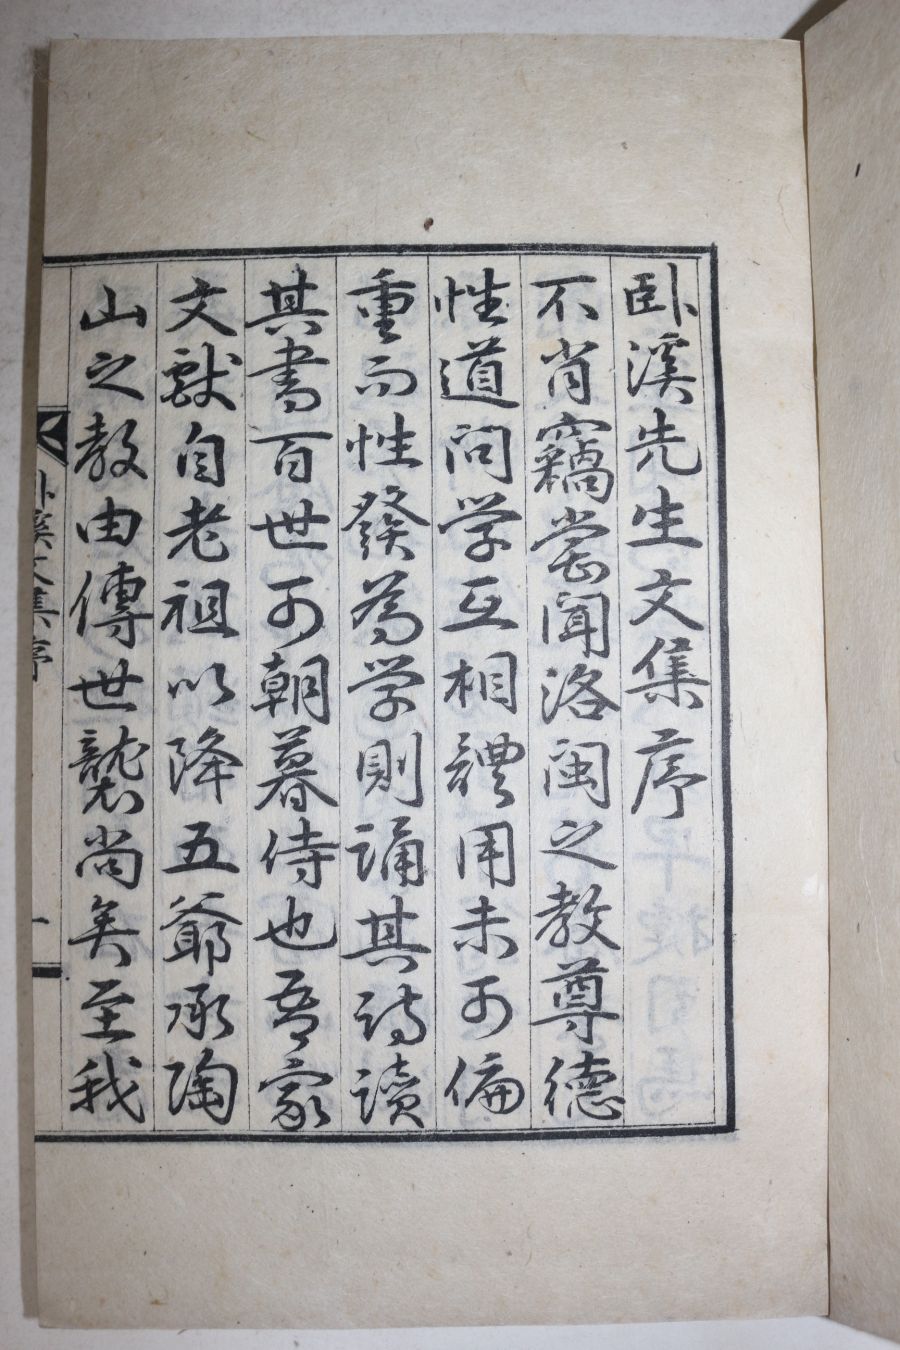 卧溪先生文集序
不肖竊嘗聞洛閩之教尊德
性道問学互相體用未可偏
重而性發為学則誦其詩讀
其書百世可朝暮侍也吾家
文獻自老祖以降五爺承陶
山之教由傳世襲尚矣至我
卧溪文集序
一